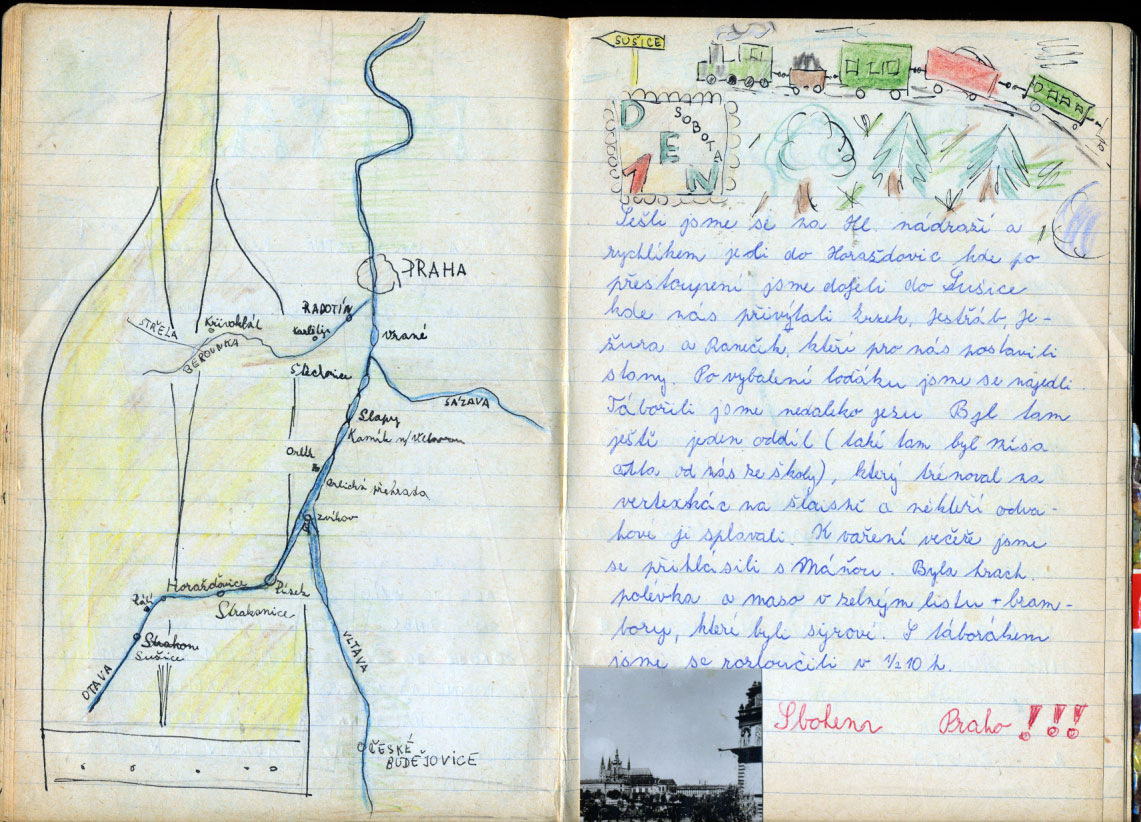 PRAHA
RADOTÍN
STŘELA
Křivoklát
Karlštejn
BEROUNKA
Vrané
Štěchovice
SÁZAVA
Slapy
Kamík n/Vltavou
Orlík
Orlická přehrada
Zvíkov
Horažďovice
Písek
Strakonice
Rábí
Strakon
Sušice
OTAVA
VLTAVA
ČESKÉ
BUDĚJOVICE
SUŠICE
SOBOTA
1 DEN
Sešli jsme se na Hl. nádraží a
rychlíkem jeli do Horažďovic kde po
přestoupení jsme dojeli do Sušice
kde nás přivýtali Zrzek, Jestřáb, Je-
žura a Raneček, kteří pro nás postavili
stany. Po vybalení loďáku jsme se najedli.
Tábořili jsme nedaleko jezu Byl tam
ještě jeden oddíl (také tam byl Mísa
od nás ze školy), který trénoval na
na šlajsně a někteří odva-
hové ji splavali. K vaření večeře jsme
se přihlásili s Máňou. Byla hrach.
polévka a maso v zelným listu + bram-
bory, kteří byli sýrové. S táborákem
jsme se rozloučili v 1/2 10 h.
Sbohem Praho !!!